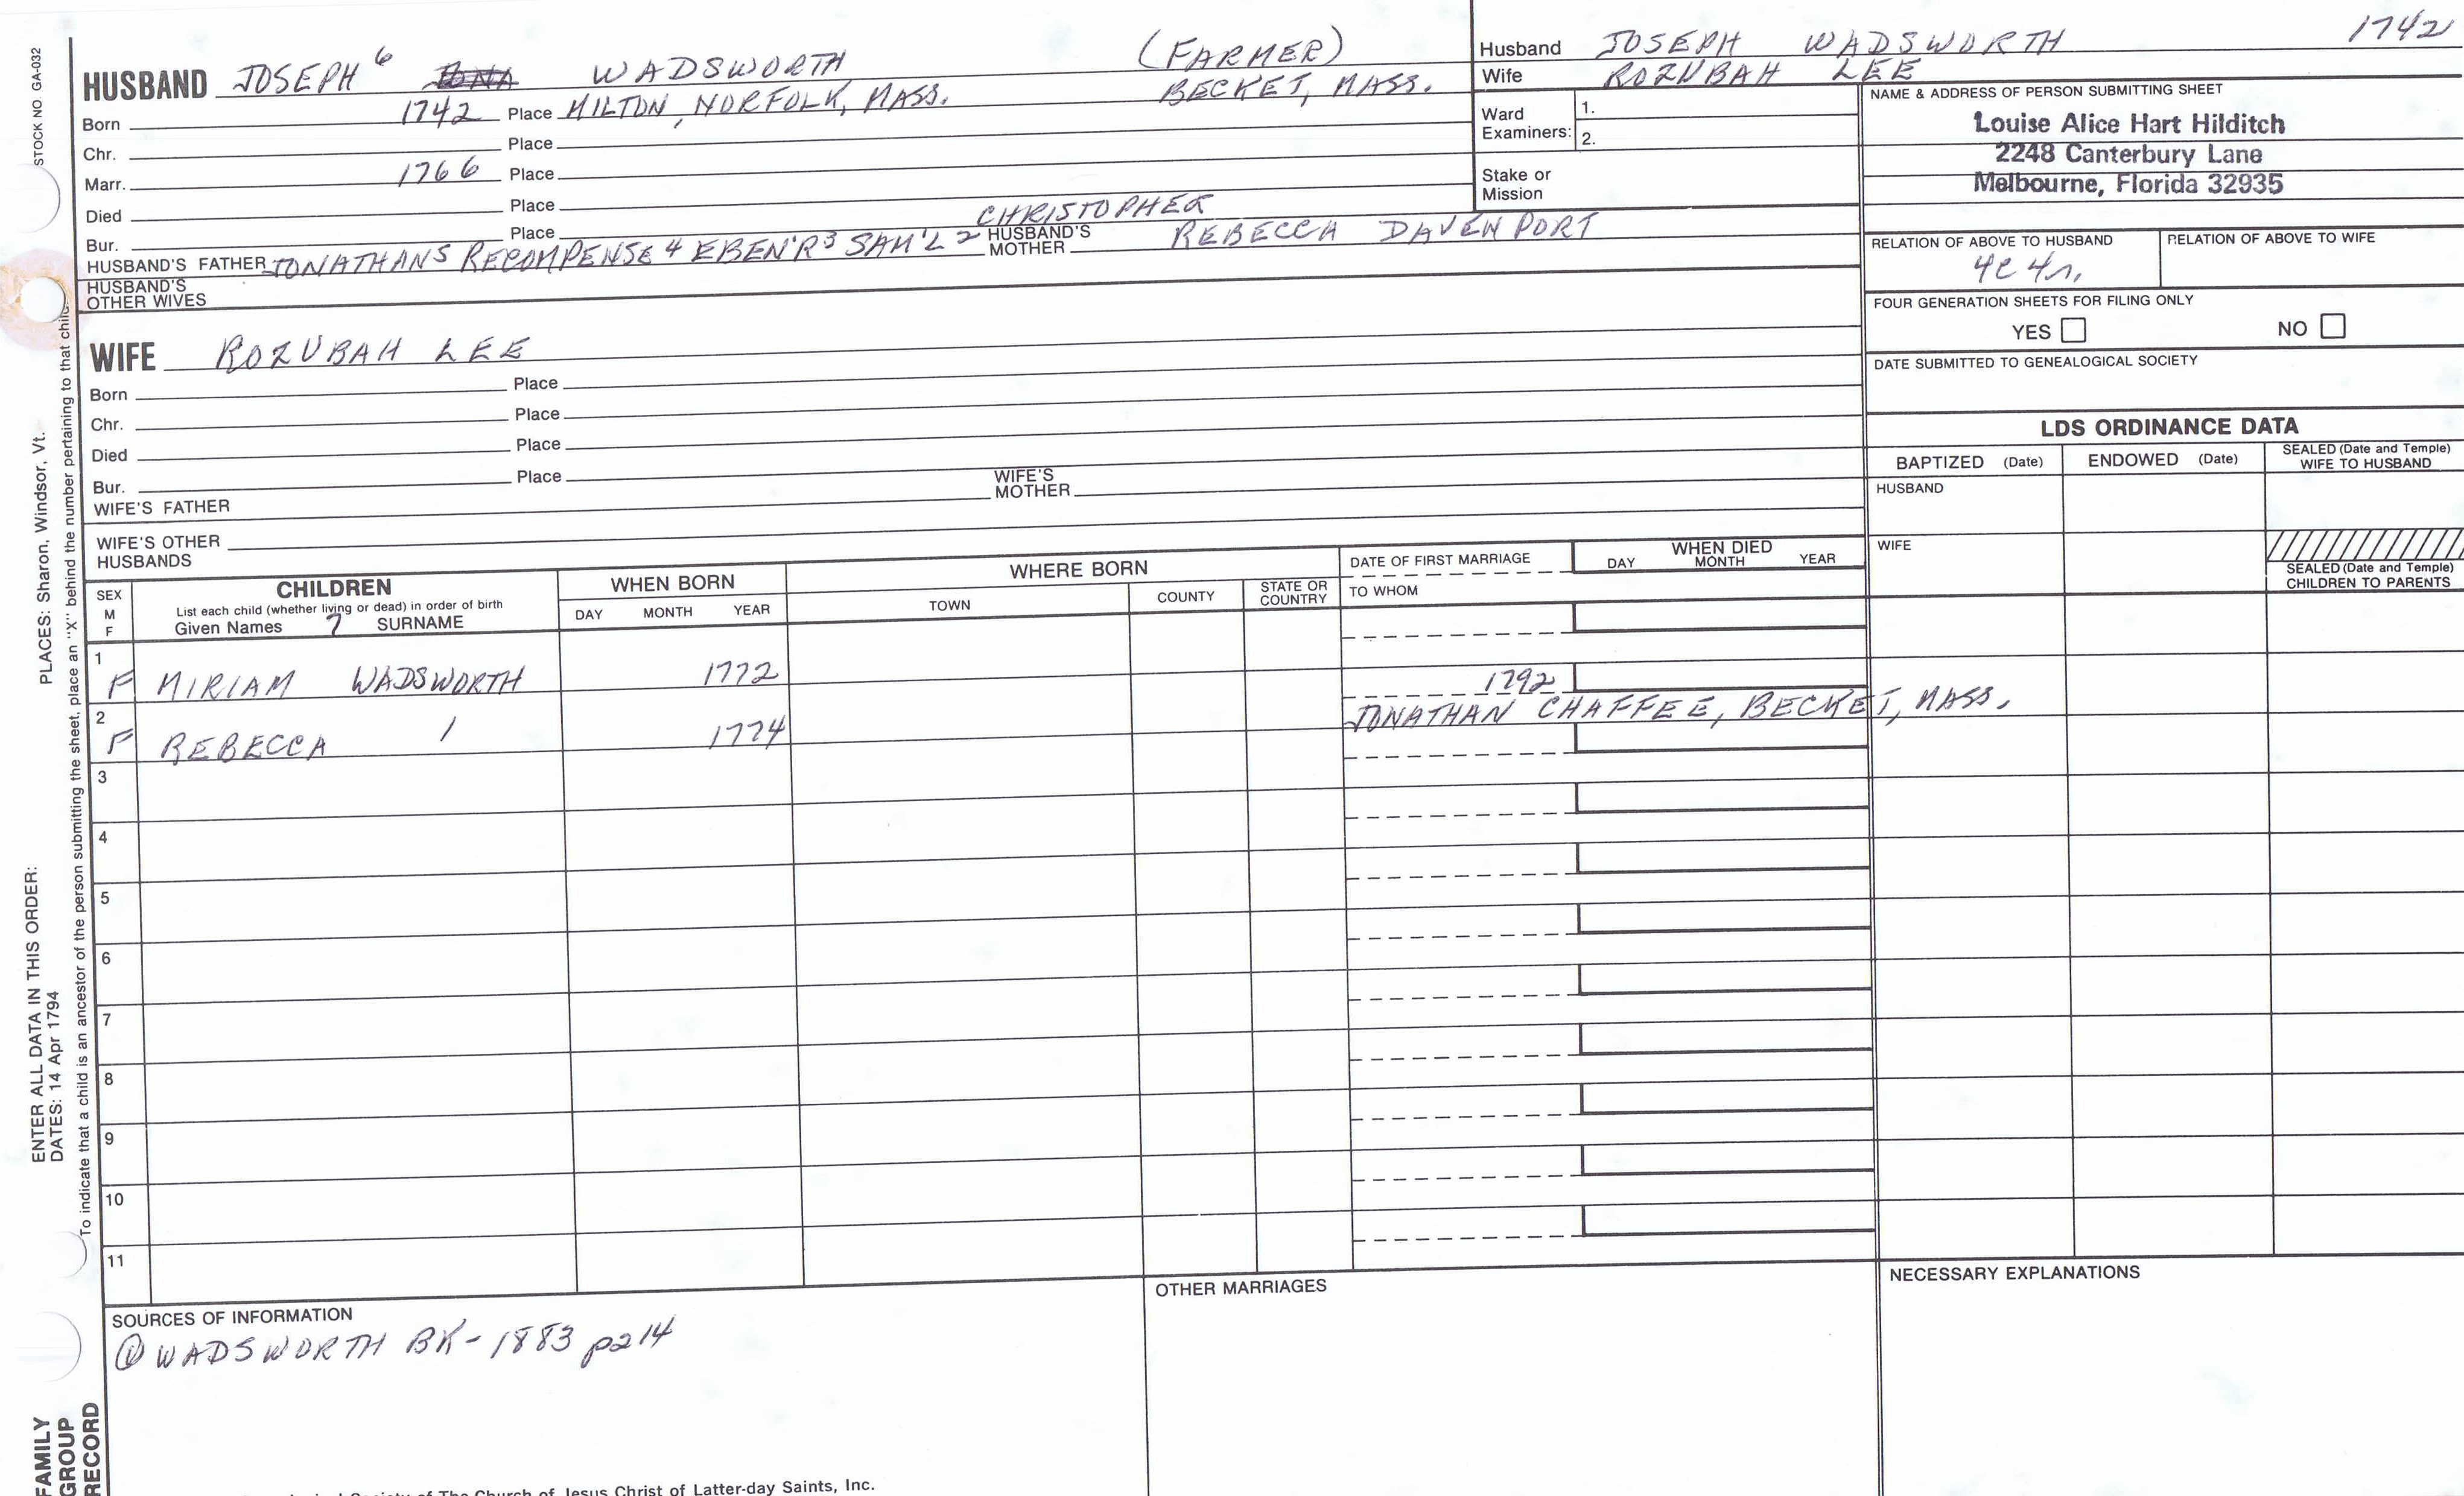 STOCK NO GA-032
HUSBAND JOSEPH 6 WADSWORTH (FARMER)
Born 1742 Place MILTON, NORFOLK, MASS. BECKET, MASS.
Chr. Place
Marr. 1766 Place
Died Place
CHRISTOPHER
Bur. Place
HUSBAND'S FATHER JONATHAN 5 RECOMPENSE 4 EBEN'R 3 SAM'L 2 HUSBAND'S MOTHER REBECCA DAVENPORT
HUSBAND'S OTHER WIVES
WIFE ROZUBAH LEE
Born Place
Chr. Place
Died Place
Bur. Place
WIFE'S FATHER WIFE'S MOTHER
WIFE'S OTHER HUSBANDS
1742
Husband JOSEPH WADSWORTH
Wife ROZUBAH LEE
Ward Examiners: 1.
2.
Stake or Mission
NAME & ADDRESS OF PERSON SUBMITTING SHEET
Louise Alice Hart Hilditch
2248 Canterbury Lane
Melbourne, Florida 32935
RELATION OF ABOVE TO HUSBAND RELATION OF ABOVE TO WIFE
4C 4r.
FOUR GENERATION SHEETS FOR FILING ONLY
YES NO
DATE SUBMITTED TO GENEALOGICAL SOCIETY
LDS ORDINANCE DATA
BAPTIZED (Date) ENDOWED (Date) SEALED (Date and Temple) WIFE TO HUSBAND
HUSBAND
WIFE
SEALED (Date and Temple) CHILDREN TO PARENTS
SEX M F
CHILDREN
List each child (whether living or dead) in order of birth
Given Names 7 SURNAME
WHEN BORN
DAY MONTH YEAR
WHERE BORN
TOWN COUNTY STATE OR COUNTRY
DATE OF FIRST MARRIAGE
TO WHOM
WHEN DIED
DAY MONTH YEAR
1 F MIRIAM WADSWORTH 1772
2 F REBECCA / 1774 1792
JONATHAN CHAFFEE, BECKET, MASS.
3
4
5
6
7
8
9
10
11
SOURCES OF INFORMATION
① WADSWORTH BK-1883 p214
OTHER MARRIAGES
NECESSARY EXPLANATIONS
Society of The Church of Jesus Christ of Latter-day Saints, Inc.
PLACES: Sharon, Windsor, Vt.
ENTER ALL DATA IN THIS ORDER:
DATES: 14 Apr 1794
To indicate that a child is an ancestor of the person submitting the sheet, place an "X" behind the number pertaining to that child.
FAMILY
GROUP
RECORD